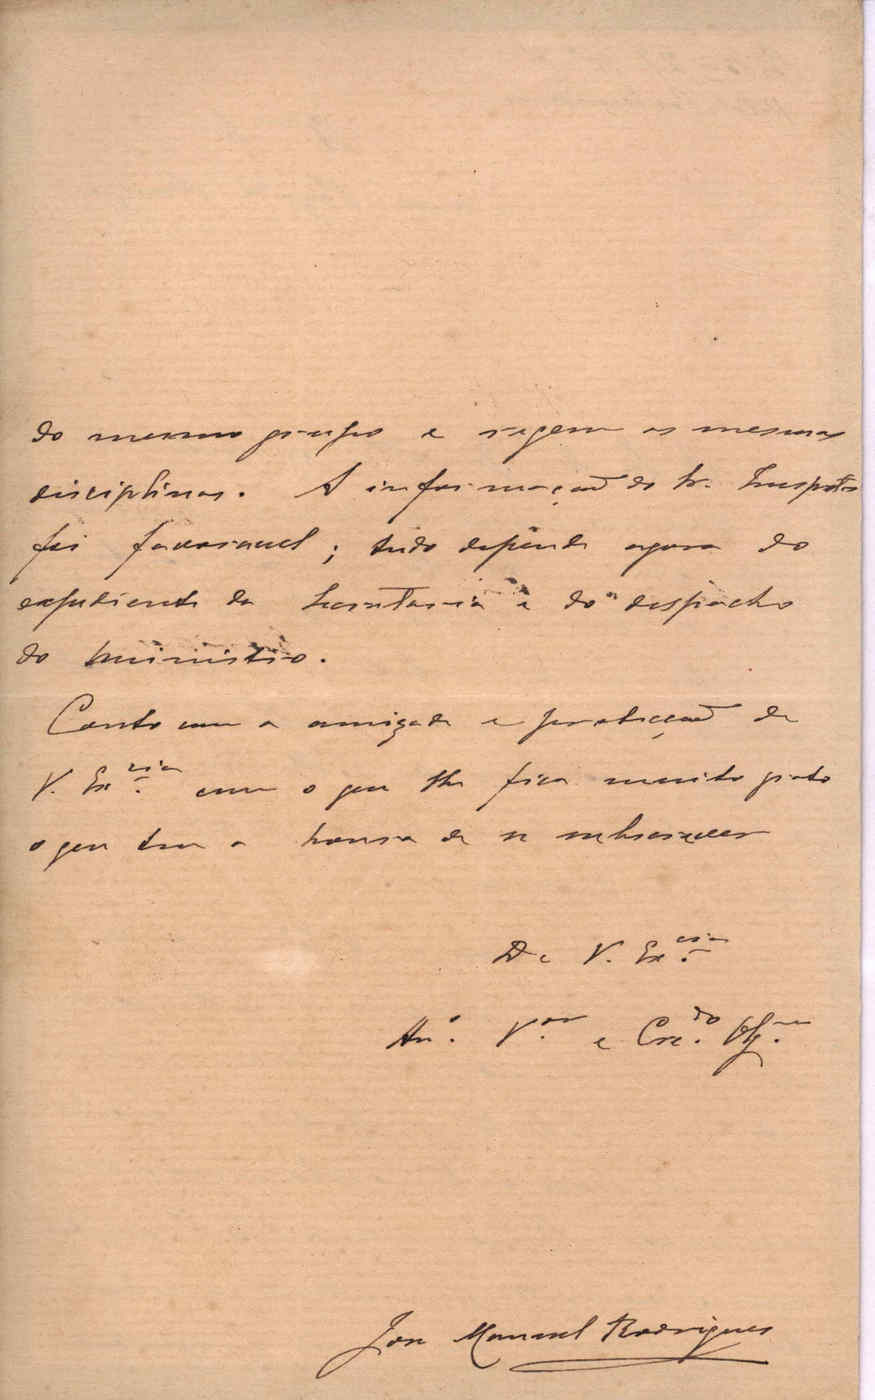 do mesmo grupo e regem as mesmas
disciplinas. A informação do Sr. Inspector
foi favoravel; tudo depende agora do
expediente da Secretaria e do despacho
do ministro.
Conto com a amizade e protecção de
V. Ex.cia com o que lhe fica muito grato
o que tem a honra de se subscrever
De V. Ex.cia
Am.o V.or e Cre.do Obg.mo
José Manuel Rodrigues